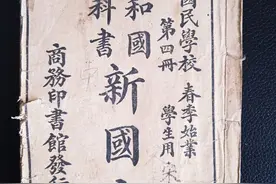 國民學校
春季始業
第四冊
學生用
和國
新國
科書
商務印書館發行